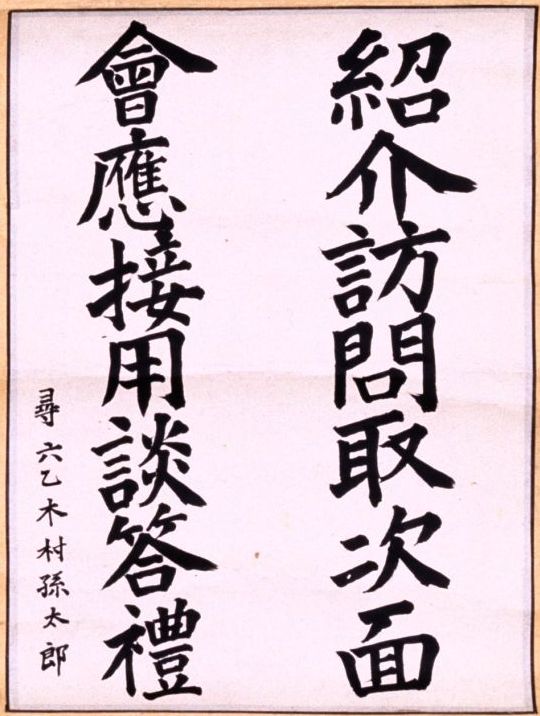 紹介訪問取次面
會應接用談答禮
尋六乙木村孫太郎